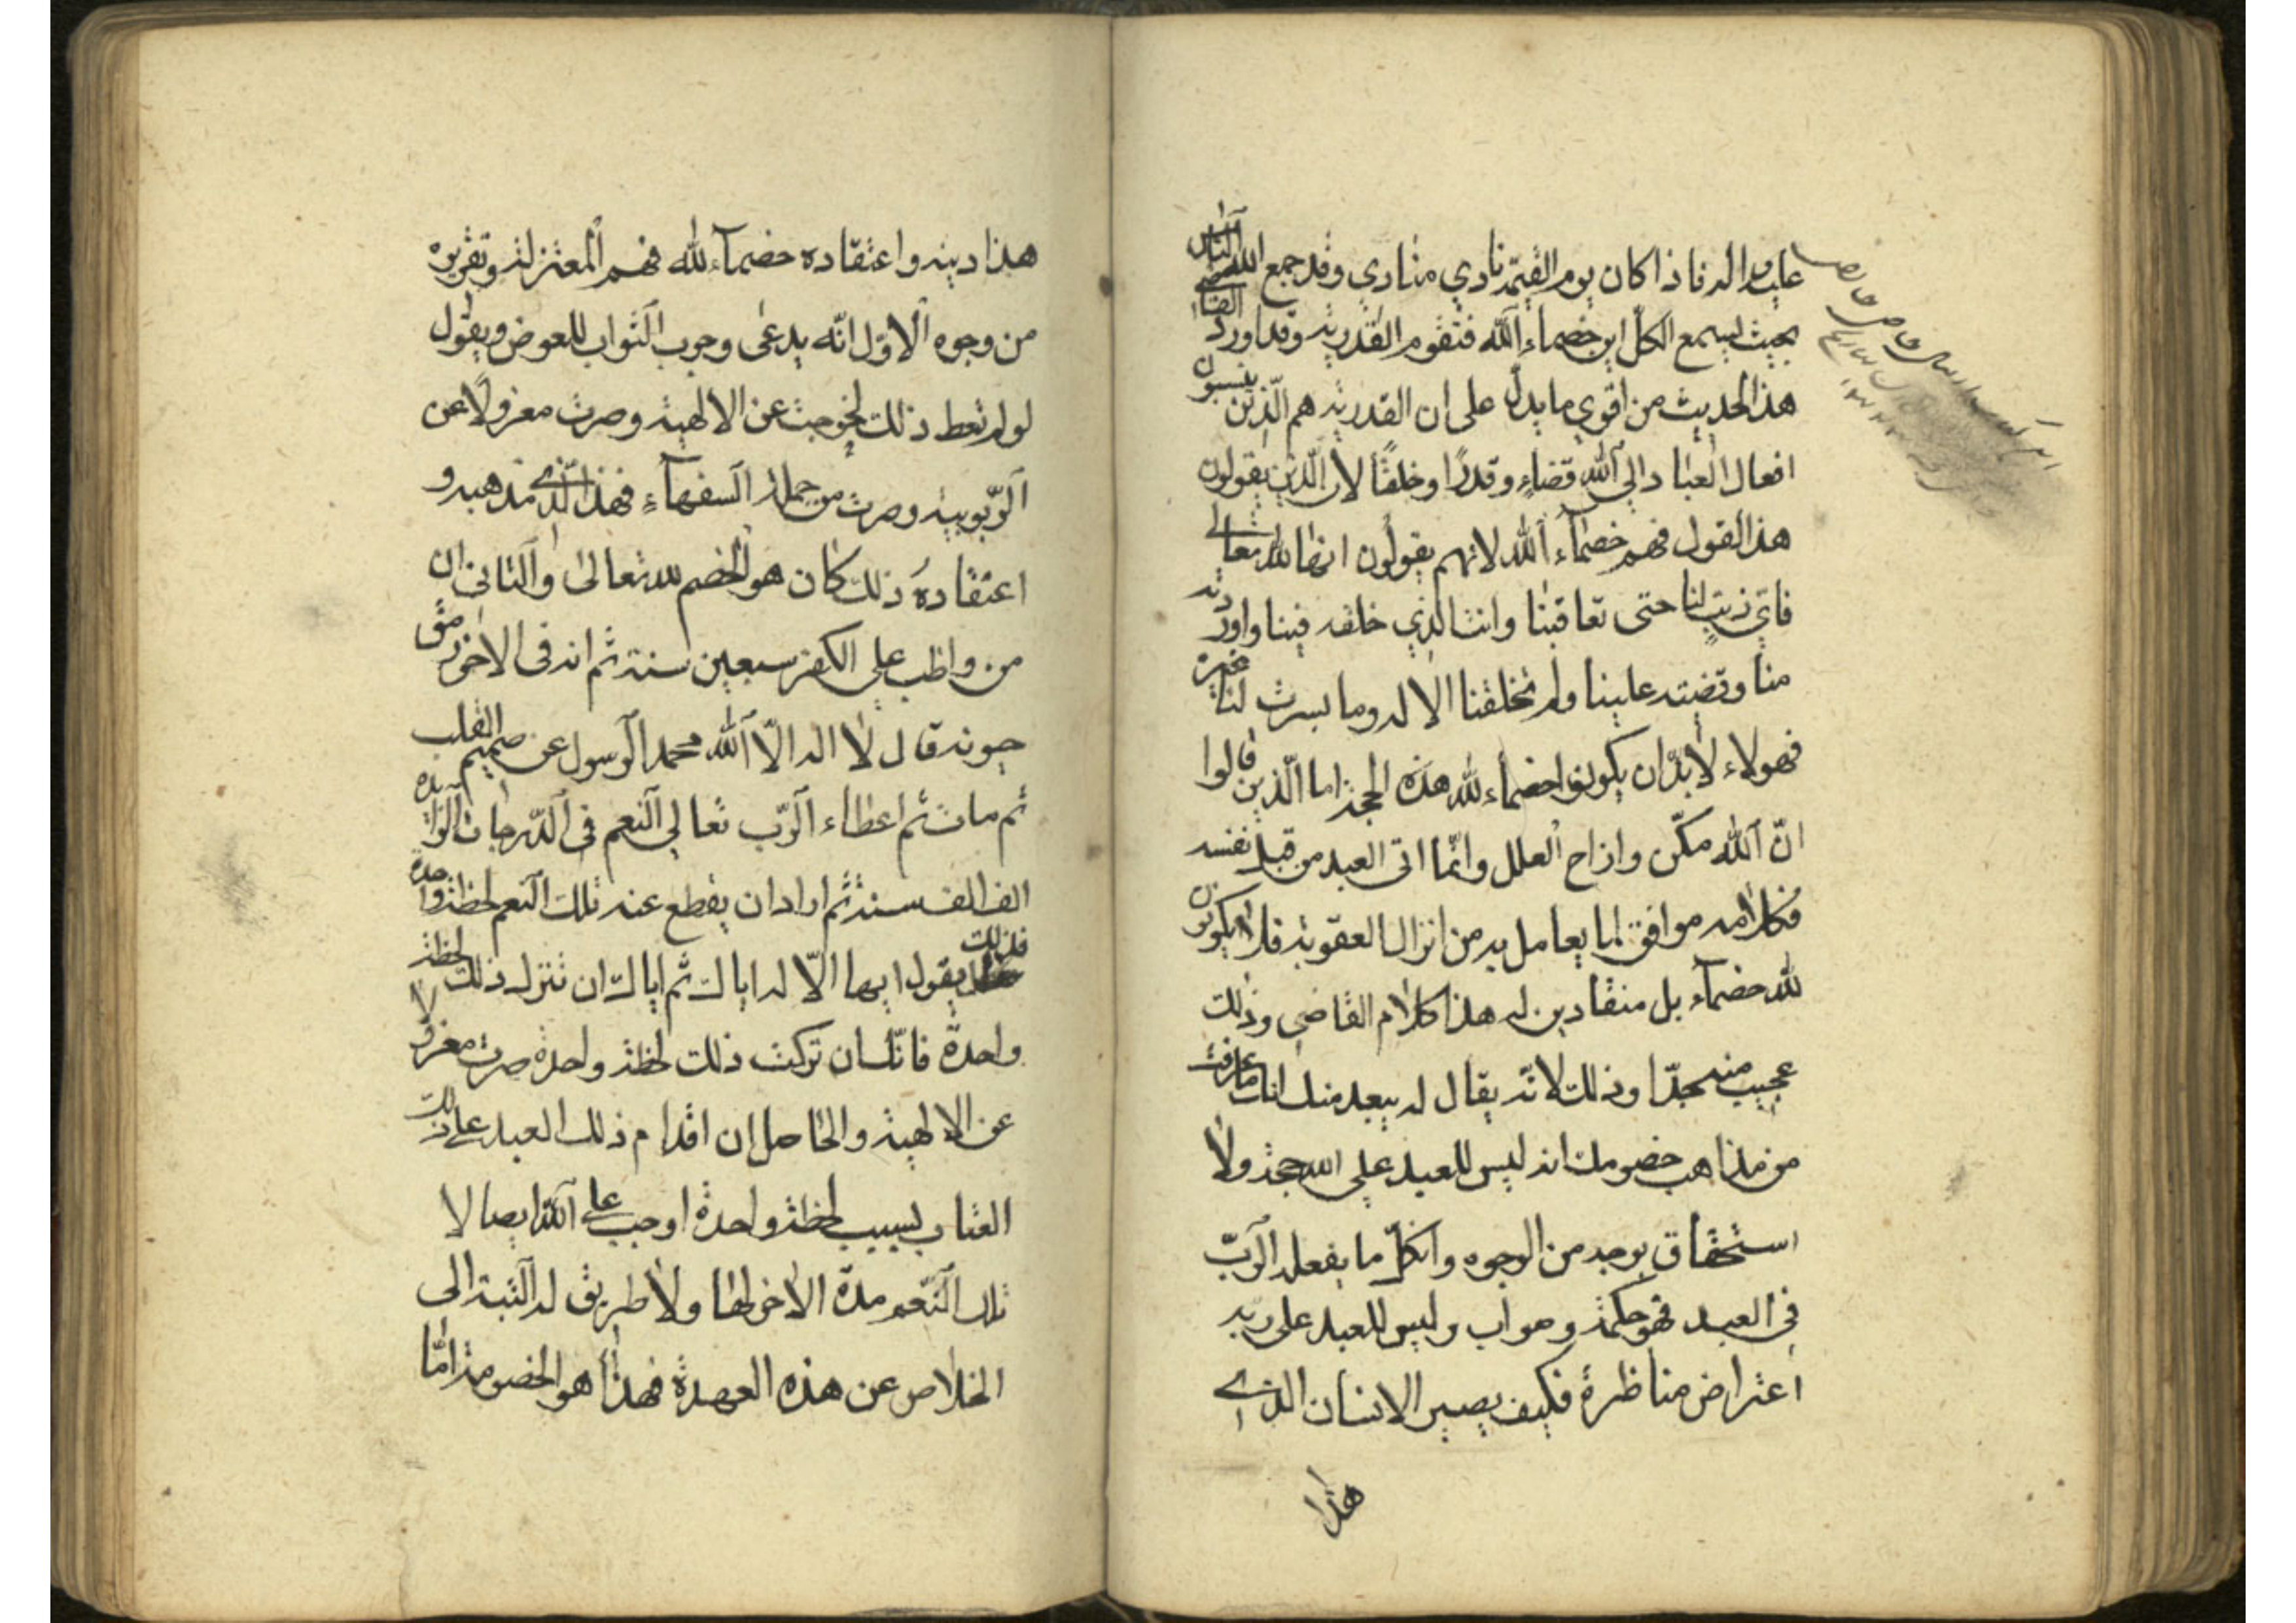 عليه واله فاذا كان يوم القيمة نادي منادي وقد جمع الله الناس
بحيث يسمع الكل اين خصماء الله فتقوم القدرية وقد اورد القاضي
هذا الحديث من اقوي ما يدل على ان القدرية هم الذين ينسبون
افعال العباد الي الله قضاء وقدرا وخلقا لان الذين يقولون
هذا القول فهم خصماء الله لانهم يقولون ايضا لله تعالي
فاي ذنب لنا حتى تعاقبنا وانت الذي خلقه فينا واوردته
منا وقضيته علينا ولم تخلقنا الا له وما يسرت لنا غيره
فهولاء لا بد ان يكونوا خصماء لله هذه الحجة اما الذين قالوا
ان الله مكن وازاح العلل وانما اتى العبد من قبل نفسه
فكلامه موافق لما يعامل به من انزال العقوبة فلا يكونون
لله خصماء بل منقادين له هذا كلام القاضي وذلك
عجيب منه جدا وذلك لانه يقال له يبعد منك انك ما عرفت
من مذاهب خصومك انه ليس للعبد علي الله حجة ولا
استحقاق بوجه من الوجوه وان كل ما يفعله الرب
في العبد فهو حكمة وصواب وليس للعبد على ربه
اعتراض مناظرة فكيف يصير الانسان الذي
هذا
هذا دينه واعتقاده خصماء لله فهم المعتزلة وتقريره
من وجوه الاول انه يدعى وجوب الثواب للعوض ويقول
لو لم تعط ذلك لخرجت عن الالهية وصرت معزولا عن
الربوبية وصرت من جملة السفهاء فهذا الذي مذهبه و
اعتقاده ذلك كان هو الخصم لله تعالى والثاني ان
من واظب علي الكفر سبعين سنة ثم انه في الاخر من
حيوته قال لا اله الا الله محمد الرسول عن صميم القلب
ثم مات ثم اعطاء الرب تعالي النعم في الدرجات الزايدة
الف الف سنة ثم اراد ان يقطع عنه تلك النعم لحظة واحدة
فذلك يقول ايها الا له اياك ثم اياك ان تترك ذلك لحظة
واحدة فانك ان تركت ذلك لحظة واحدة صرت معزولا
عن الالهية والحاصل ان اقدام ذلك العبد علي ذلك
العتاب بسبب لحظة واحدة اوجب علي الله ايصا لا
تلك النعم مدة الا خر لها ولا طريق له البتة الى
الخلاص عن هذه العهدة فهذا هو الخصومة اما